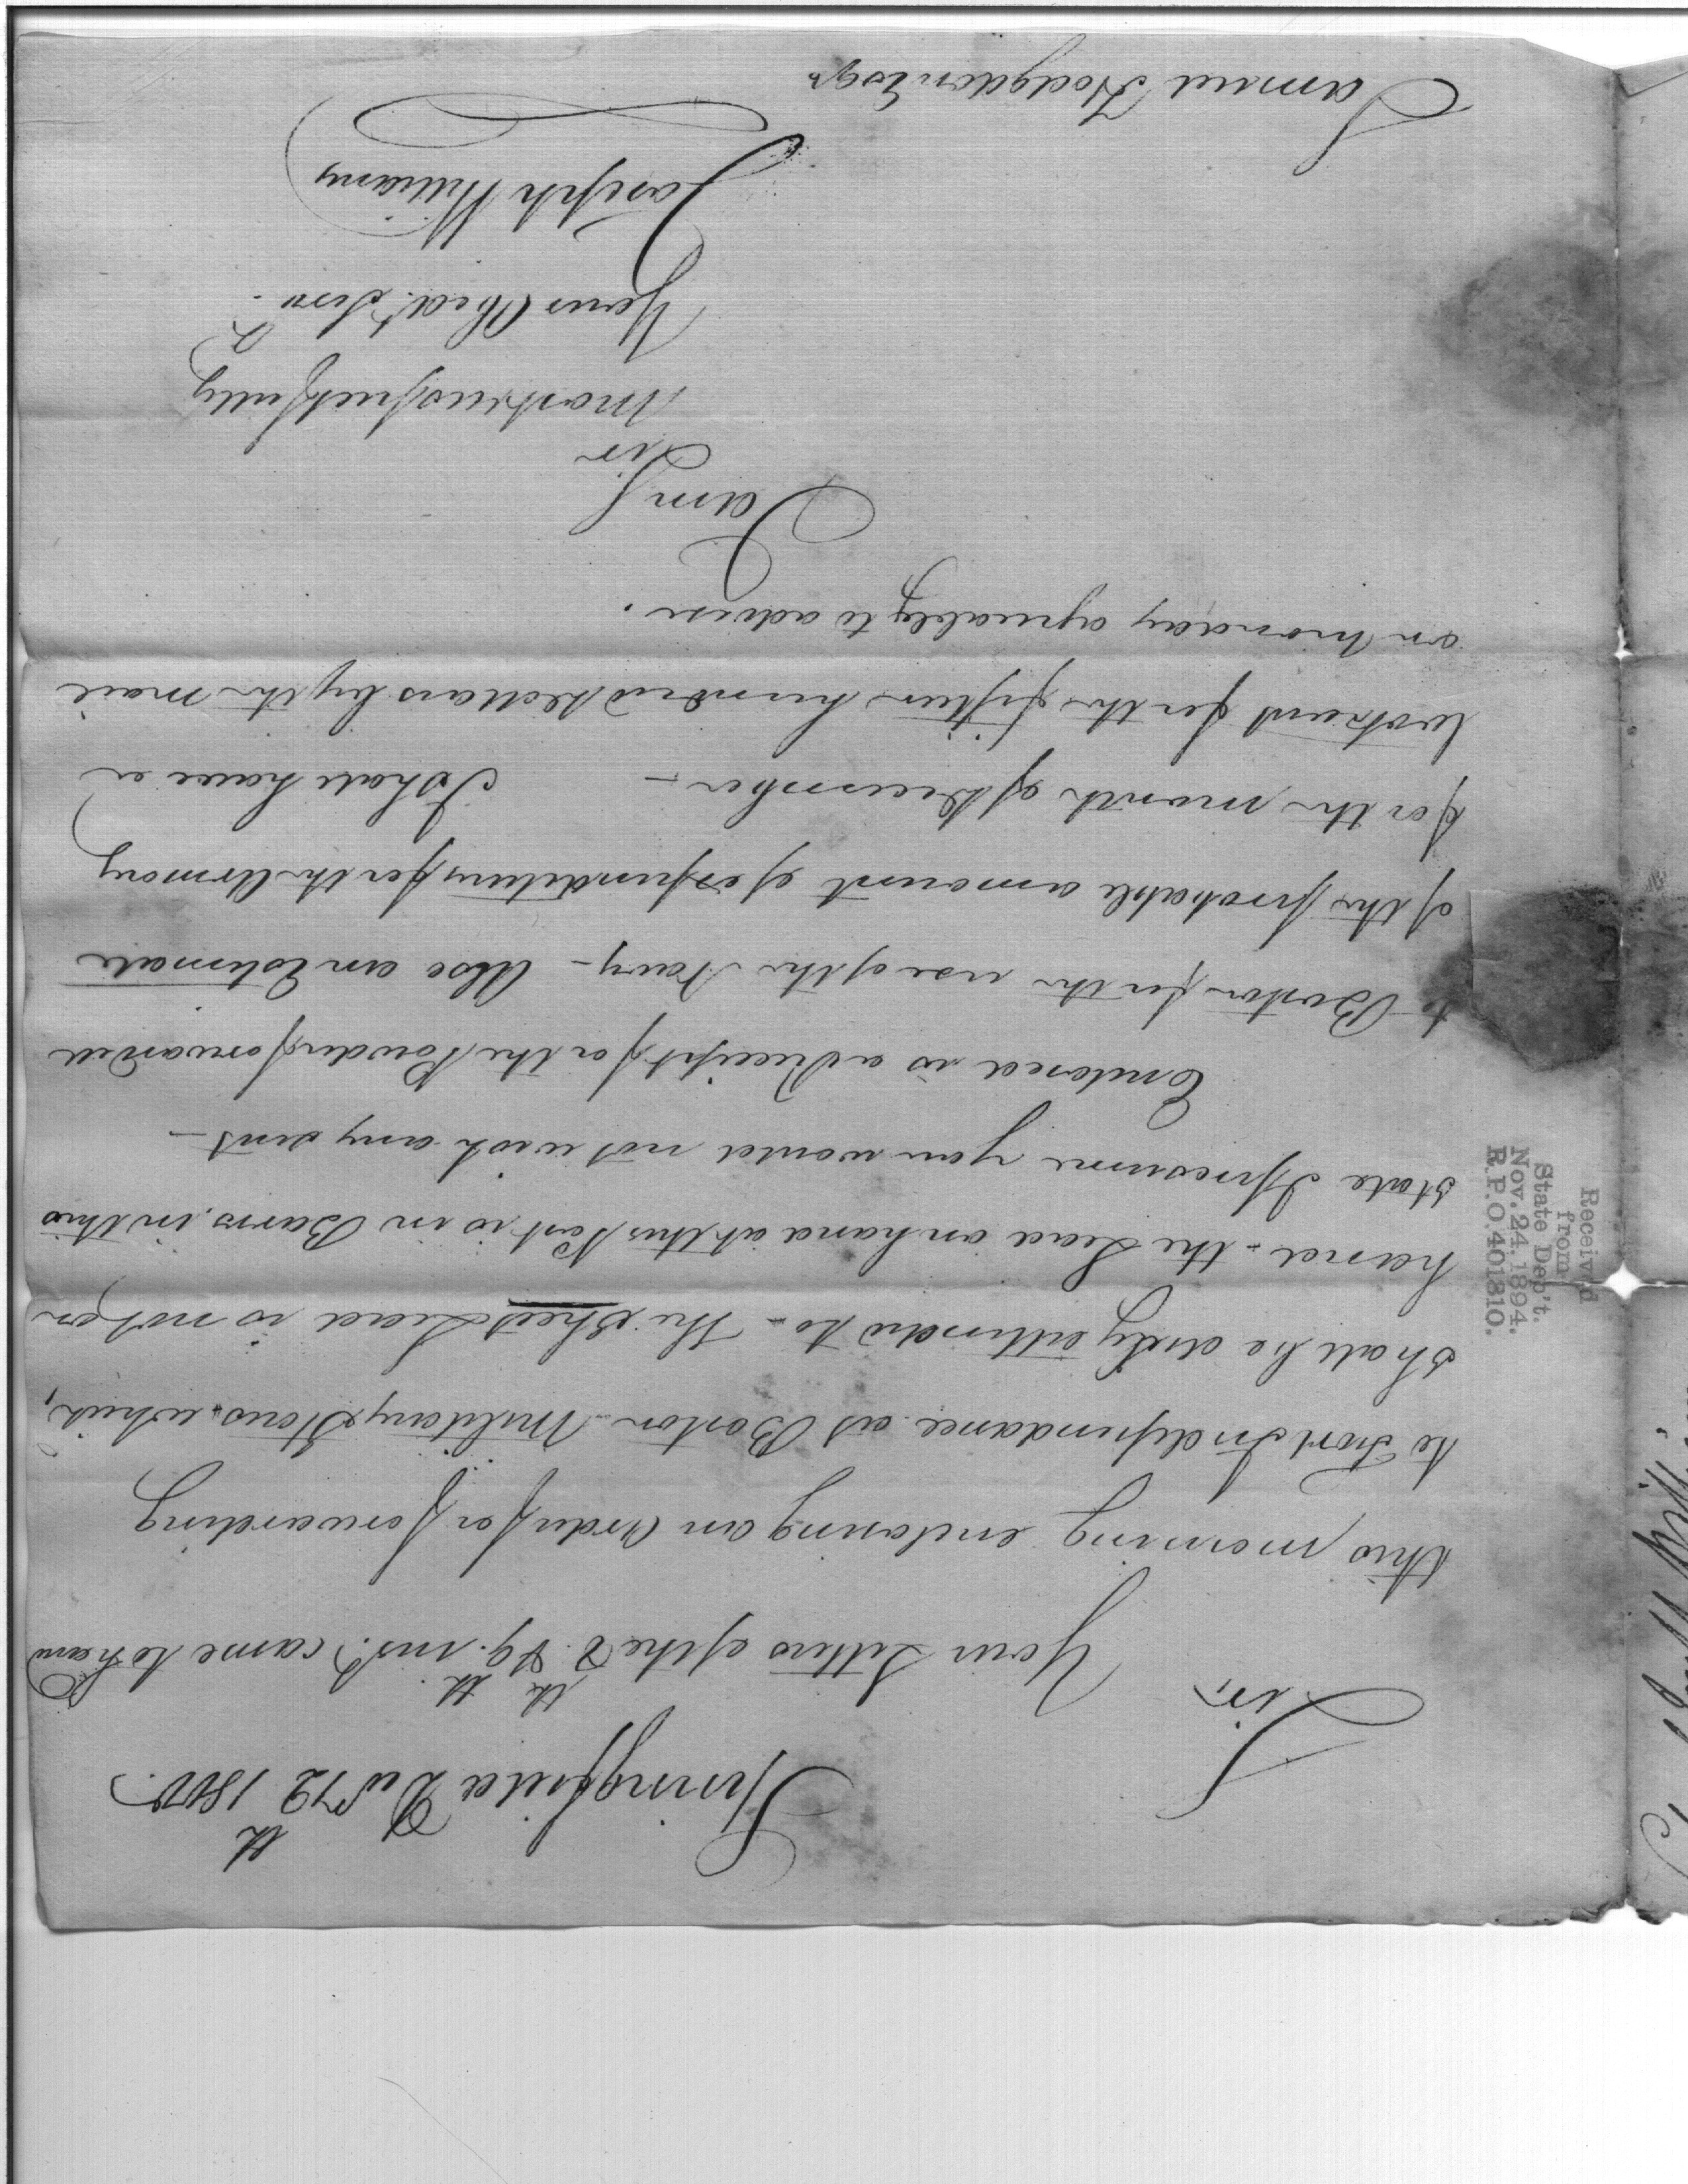 Springfield Decr 12th 1800.
Sir,
Your Letters of the 8th & 9th inst. came to hand
this morning enclosing an Order for forwarding
to Fort Independance at Boston Military Stores, which,
shall be duly attended to - The Sheet Lead is not on
hand - the Lead on hand at this Post is in Barrs, in this
state I presume you would not wish any sent -
Enclosed is a Receipt for the Powder forwarded
to Boston for the use of the Navy - Also an Estimate
of the probable amount of expenditures for the Armory
for the month of December - I shall have a
for the fifteen hundred dollars by the mail
on monday agreeably to advise.
I am
Sir
Most respectfully
Your Obedt. Servt.
Joseph Williams
Samuel Hodgdon Esqr
Received
from
State Dep't.
Nov. 24. 1894.
R.P.O. 401310.